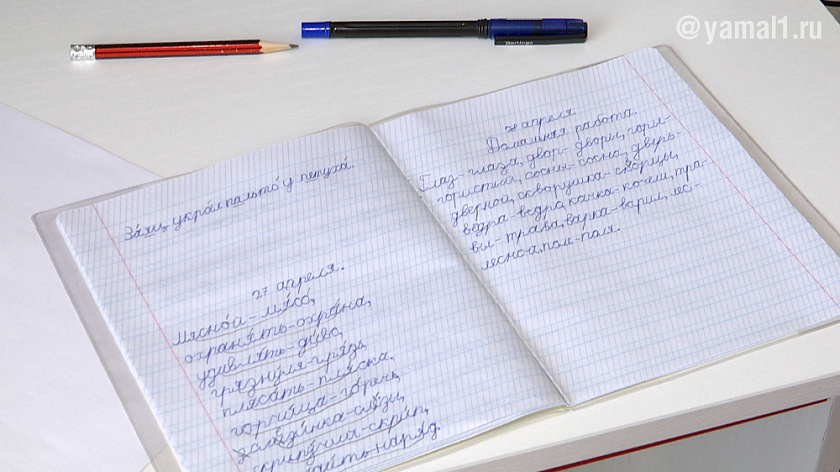 @yamal1.ru
Заяц украл пальто у петуха.
27 апреля.
Мясной-мясо,
охранять-охрана,
удивлять-диво,
грязнуля-грязь,
плясать-пляска,
горчица-горечь,
скрипучая-скрип,
наряд.
28 апреля
Домашняя работа.
Глаз-глаза, двор-дворы, горы-
гористый, сосны-сосна, дверь-
дверной, скворушка-скворцы,
ведра-ведро, качка-качели, тра-
вы-трава, варка-варил, лес-
лесно-а, поле-поля.